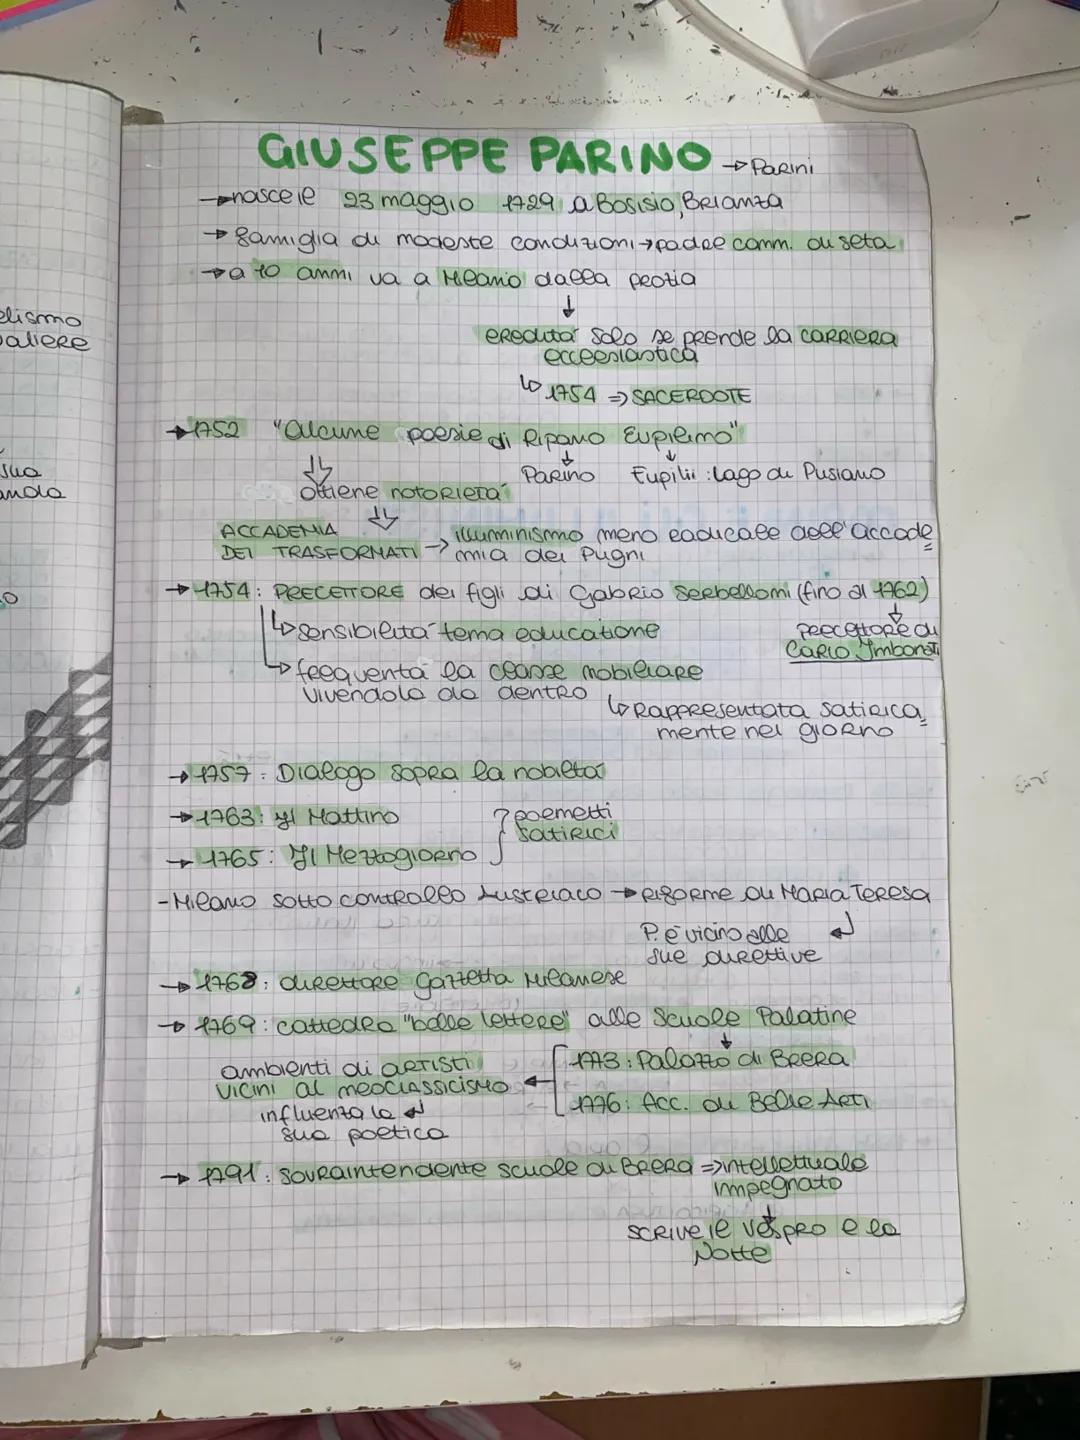 GIUSEPPE PARINO → Parini
→ nasce il 23 maggio 1729 a Bosisio, Brianza
→ famiglia di modeste condizioni → padre comm. di seta
→ a 10 anni va a Milano dalla prozia
↓
eredità solo se prende la carriera
ecclesiastica
↳ 1754 ⇒ SACERDOTE
→ 1752 "Alcune poesie di Ripano Eupilino"
Parino Eupilii: lago di Pusiano
ottiene notorietà
ACCADEMIA
DEI TRASFORMATI → illuminismo meno radicale dell'accade
mia dei Pugni
→ 1754: PRECETTORE dei figli di Gabrio Serbelloni (fino al 1762)
↳ sensibilità tema educazione
precettore di
Carlo Imbonati
↳ frequenta la classe nobiliare
vivendola da dentro
↳ Rappresentata satirica
mente nel giorno
→ 1757: Dialogo sopra la nobiltà
→ 1763: Il Mattino
→ 1765: Il Mezzogiorno
poemetti
satirici
- Milano sotto controllo Austriaco → riforme di Maria Teresa
P. è vicino alle
sue direttive
→ 1768: direttore gazzetta Milanese
→ 1769: cattedra "belle lettere" alle Scuole Palatine
1773: Palazzo di Brera
1776: Acc. di Belle Arti
ambienti di artisti
vicini al neoclassicismo
influenza la
sua poetica
→ 1791: sovraintendente scuole di Brera ⇒ intellettuale
impegnato
↓
scrive il Vespro e la
Notte
elismo
valiere
sua
anda
o